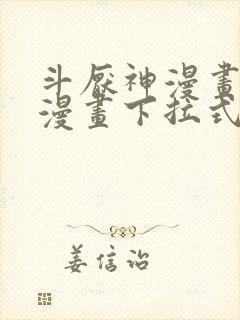 斗厭神漫畫
漫畫下拉式
姜信詒